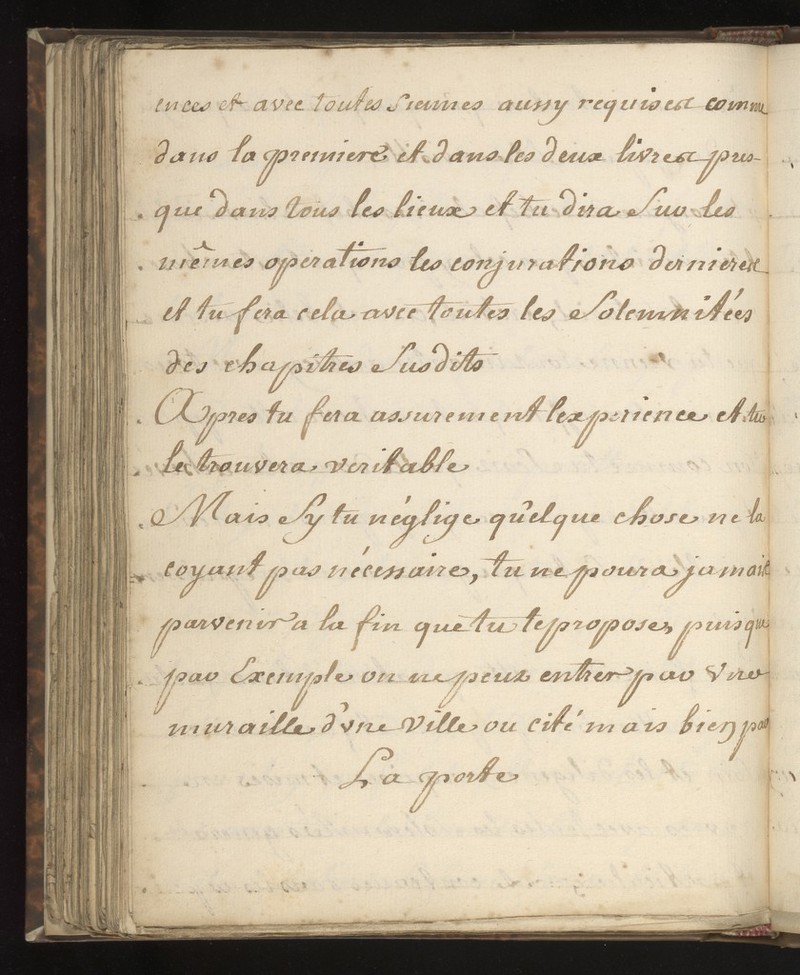 ences et avec toutes siennes aussy requises comme
dans la premiere et dans les deux livres pres-
que dans tous les lieux et tu dira sur les
mêmes operations les conjurations dernieres
et tu fera cela avec toutes les Solemnitées
des chapitres susdits
Apres tu fera assurement lexperience et tu
le trouvera veritable
Mais sy tu néglige quelque chose ne la
coyant pas nécessaire, tu ne poura jamais
parvenir a la fin que tu te propose, puisque
par Exemple on ne peux entrer par
muraille d'vne ville ou cité mais bien par
La porte